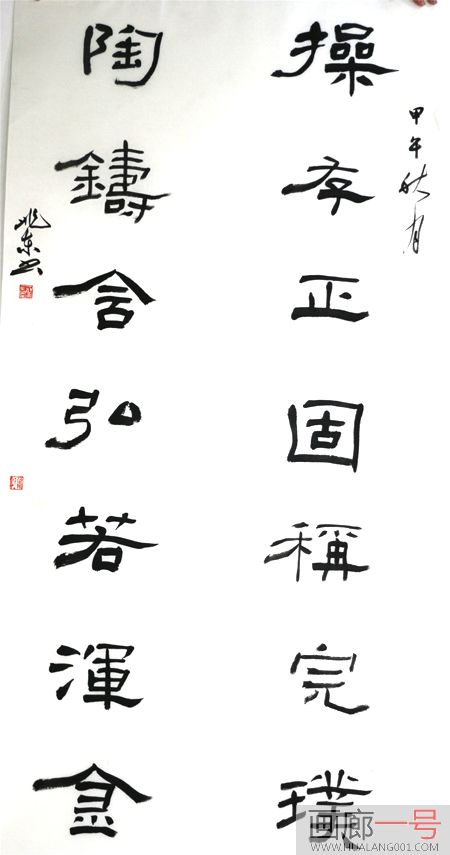 甲午秋月
操存正固稱完璞
陶鑄含弘若渾金
兆东书
画廊一号
WWW.HUALANG001.COM